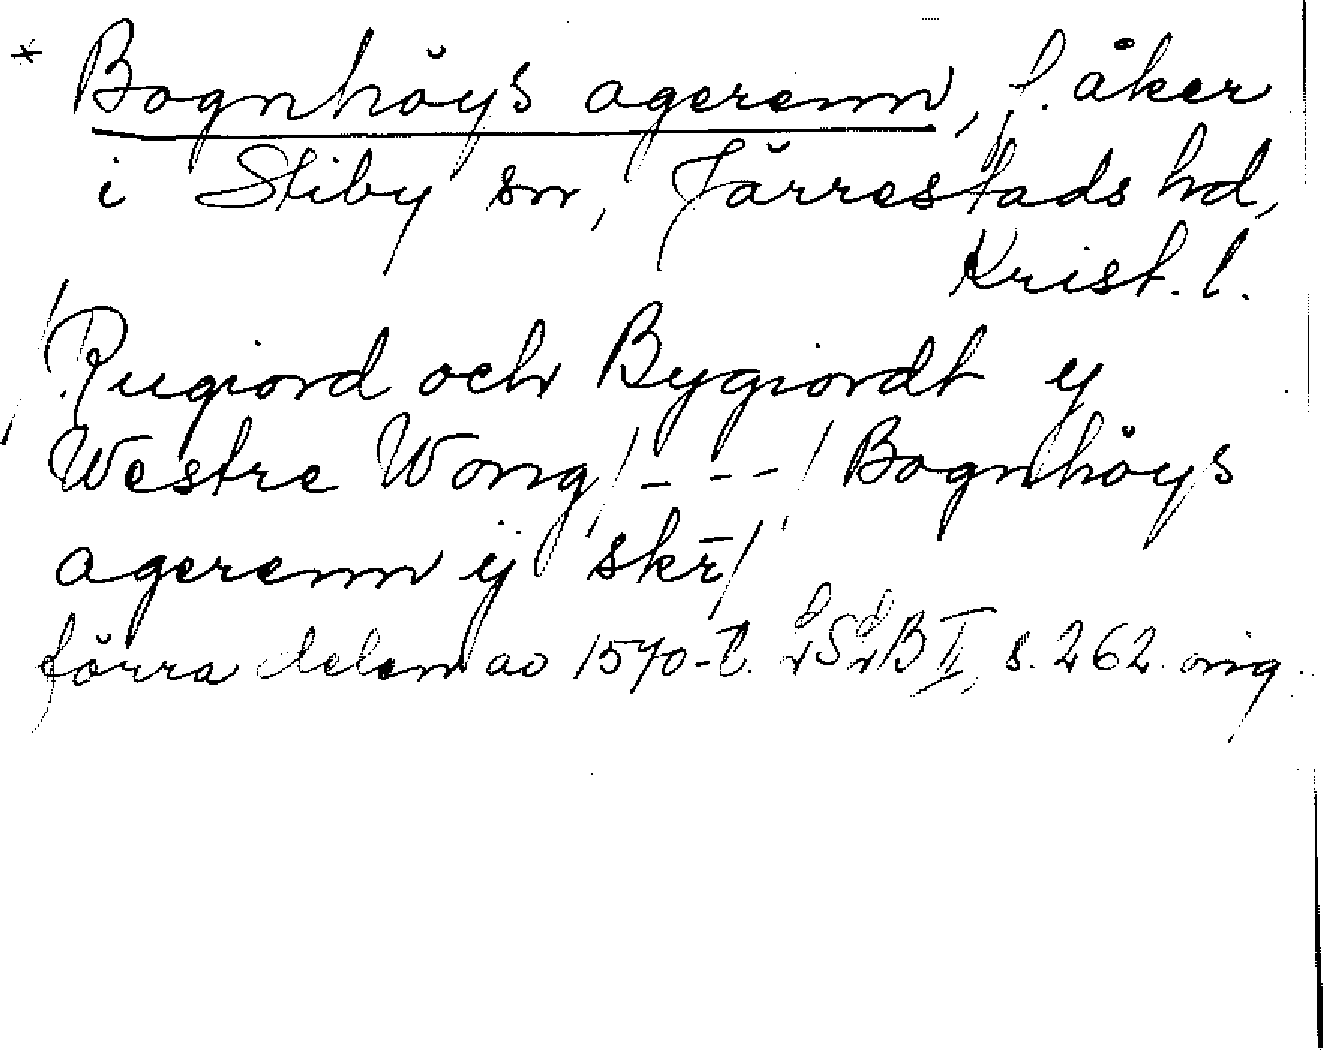 * Bognhöys agerenn, f. åker
i Stiby sn, Järrestads hd,
Krist. l.
/Rugiord och Bygiordt y
Westre Wong/ - - - / Bognhöys
agerenn ÿ skr̄/
förra delen av 1570-t. LSLB II, s. 262. orig.